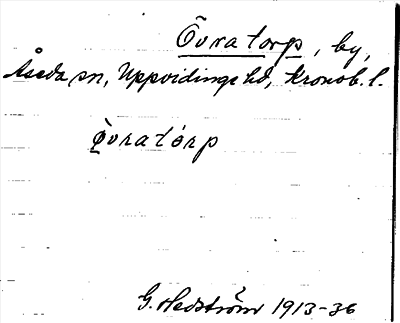 Övratorp, by,
Åseda sn, Uppvidinge hd, Kronob. l.
òvratórp
G. Hedström 1913-36